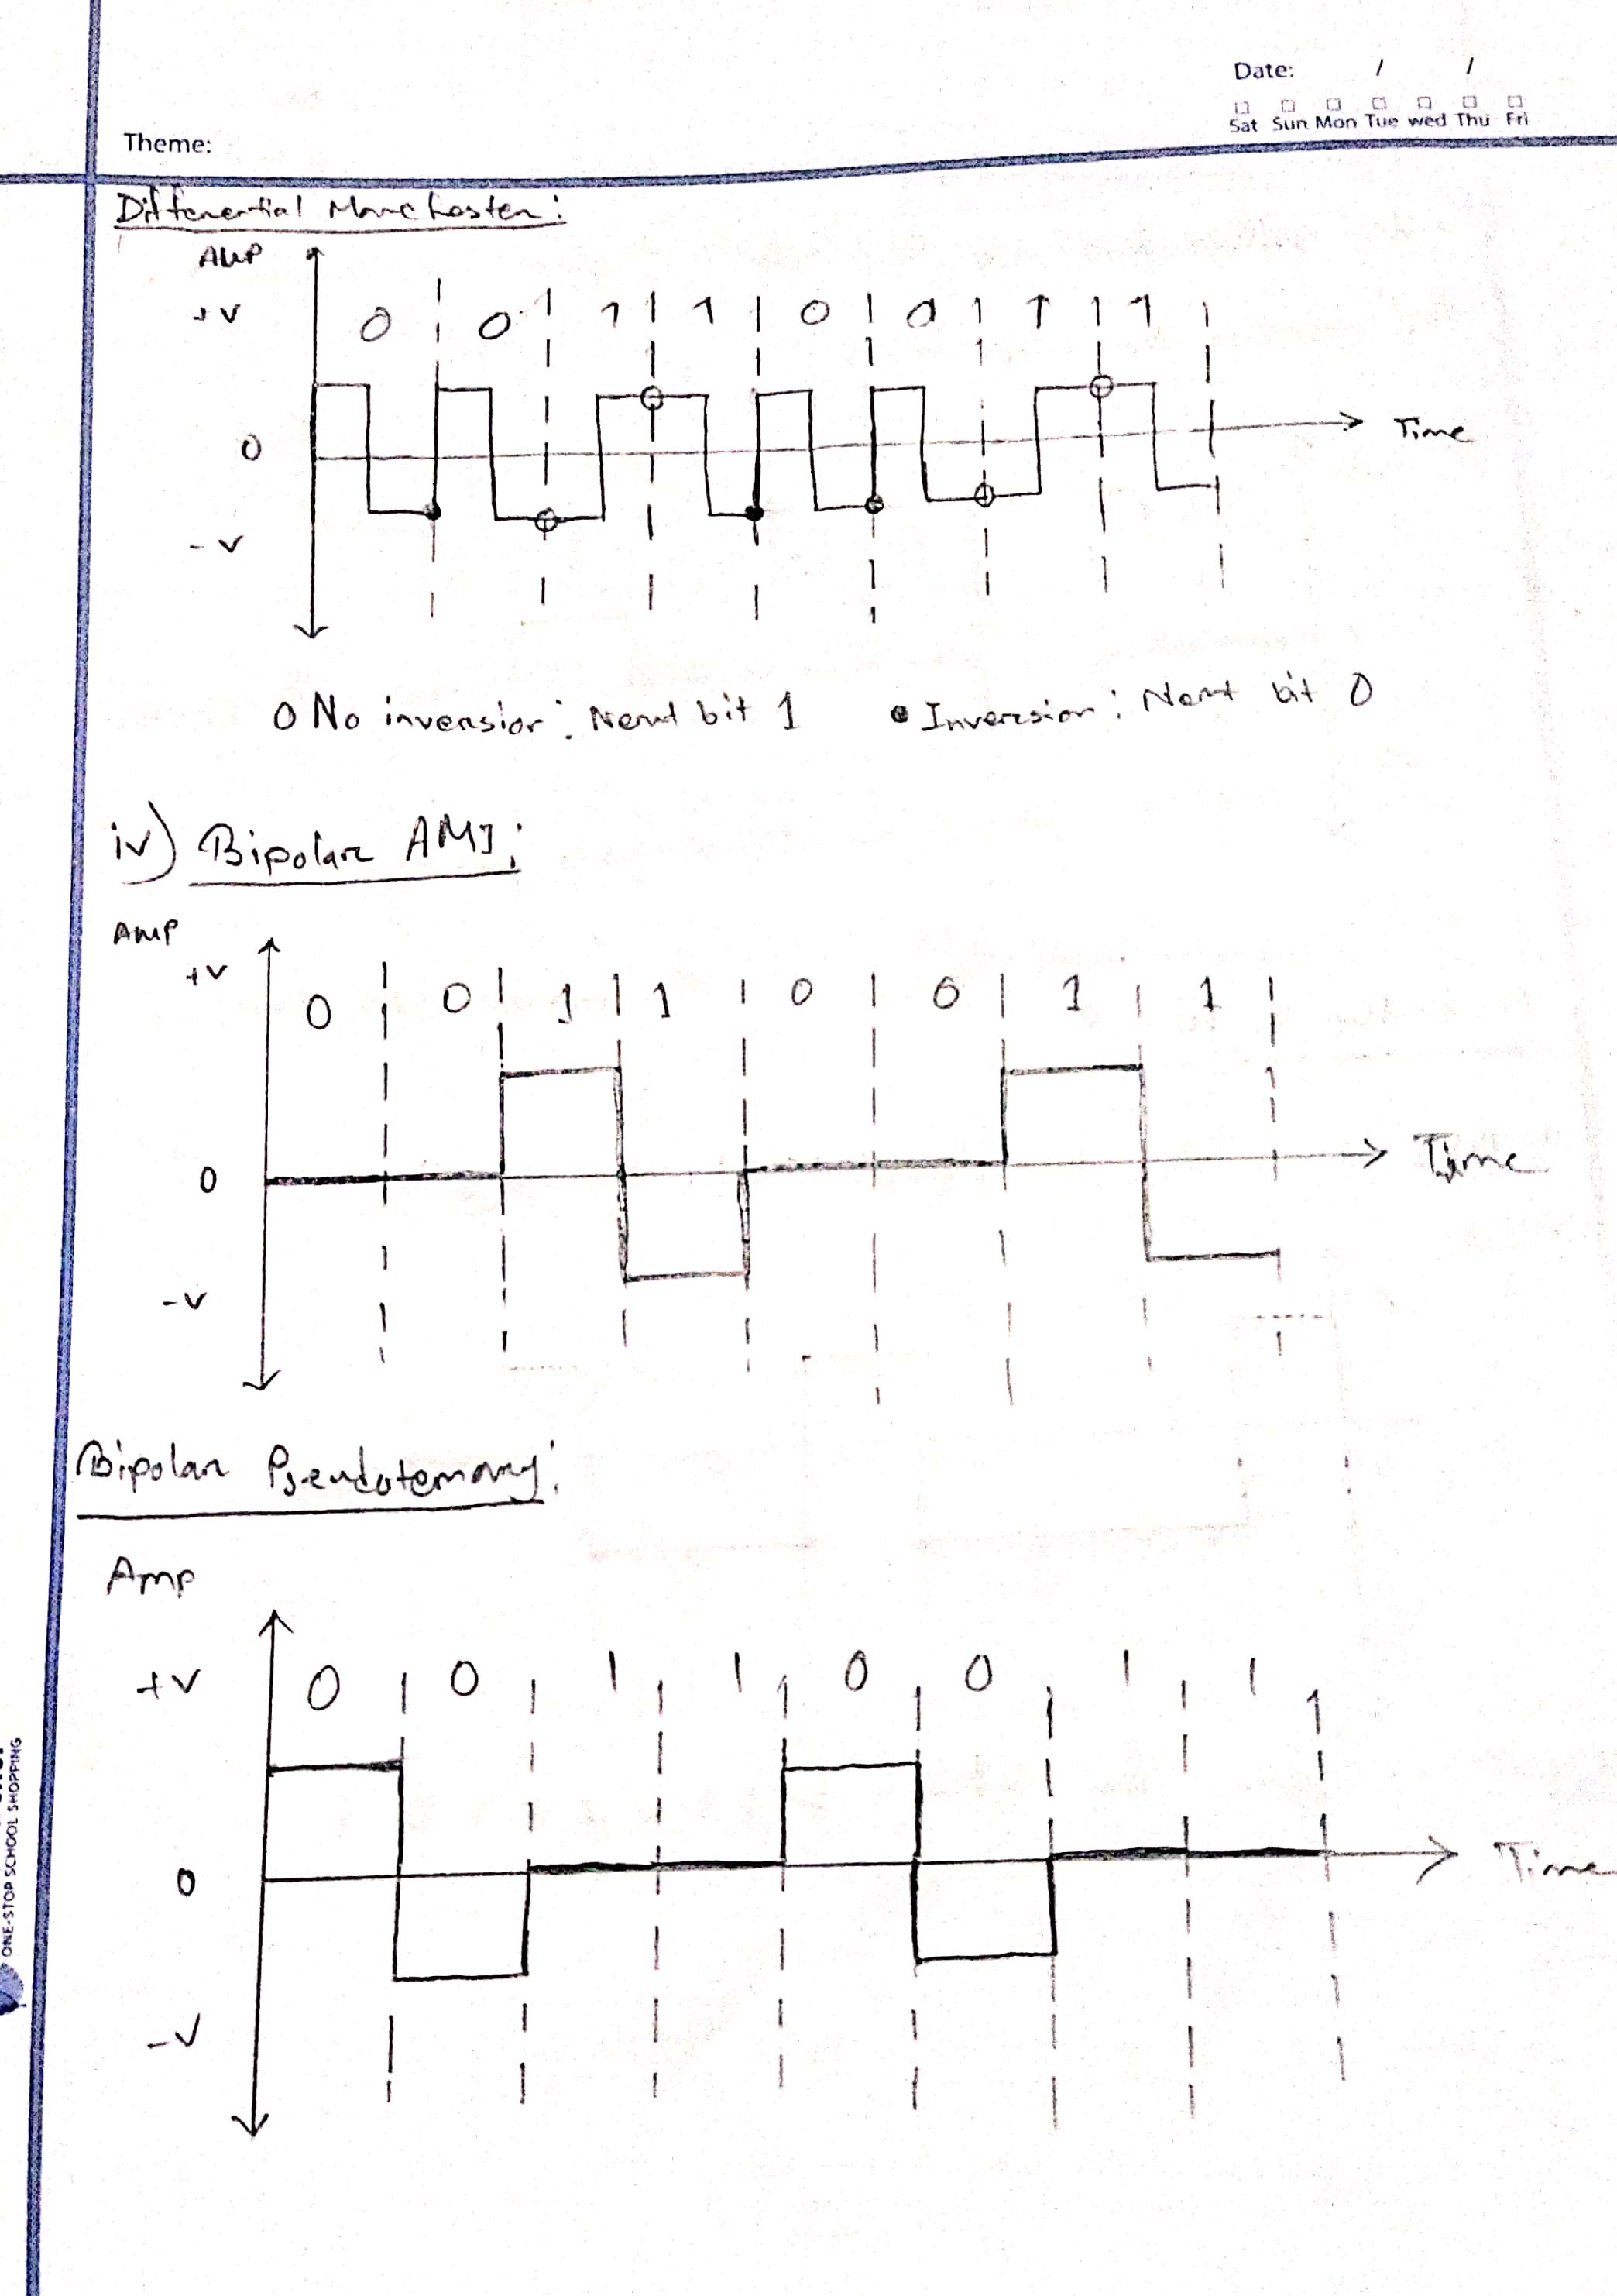 Date: / /
Sat Sun Mon Tue Wed Thu Fri
Theme:
Differential Manchester:
AMP
+V
0 0 1 1 0 0 1 1
0
Time
-V
O No inversion: Next bit 1 ● Inversion: Next bit 0
iv) Bipolar AMI:
AMP
+V
0 0 1 1 0 0 1 1
0
Time
-V
Bipolar Pseudoternary:
Amp
+V
0 0 1 1 0 0 1 1
0
Time
-V
ONE-STOP SCHOOL SHOPPING